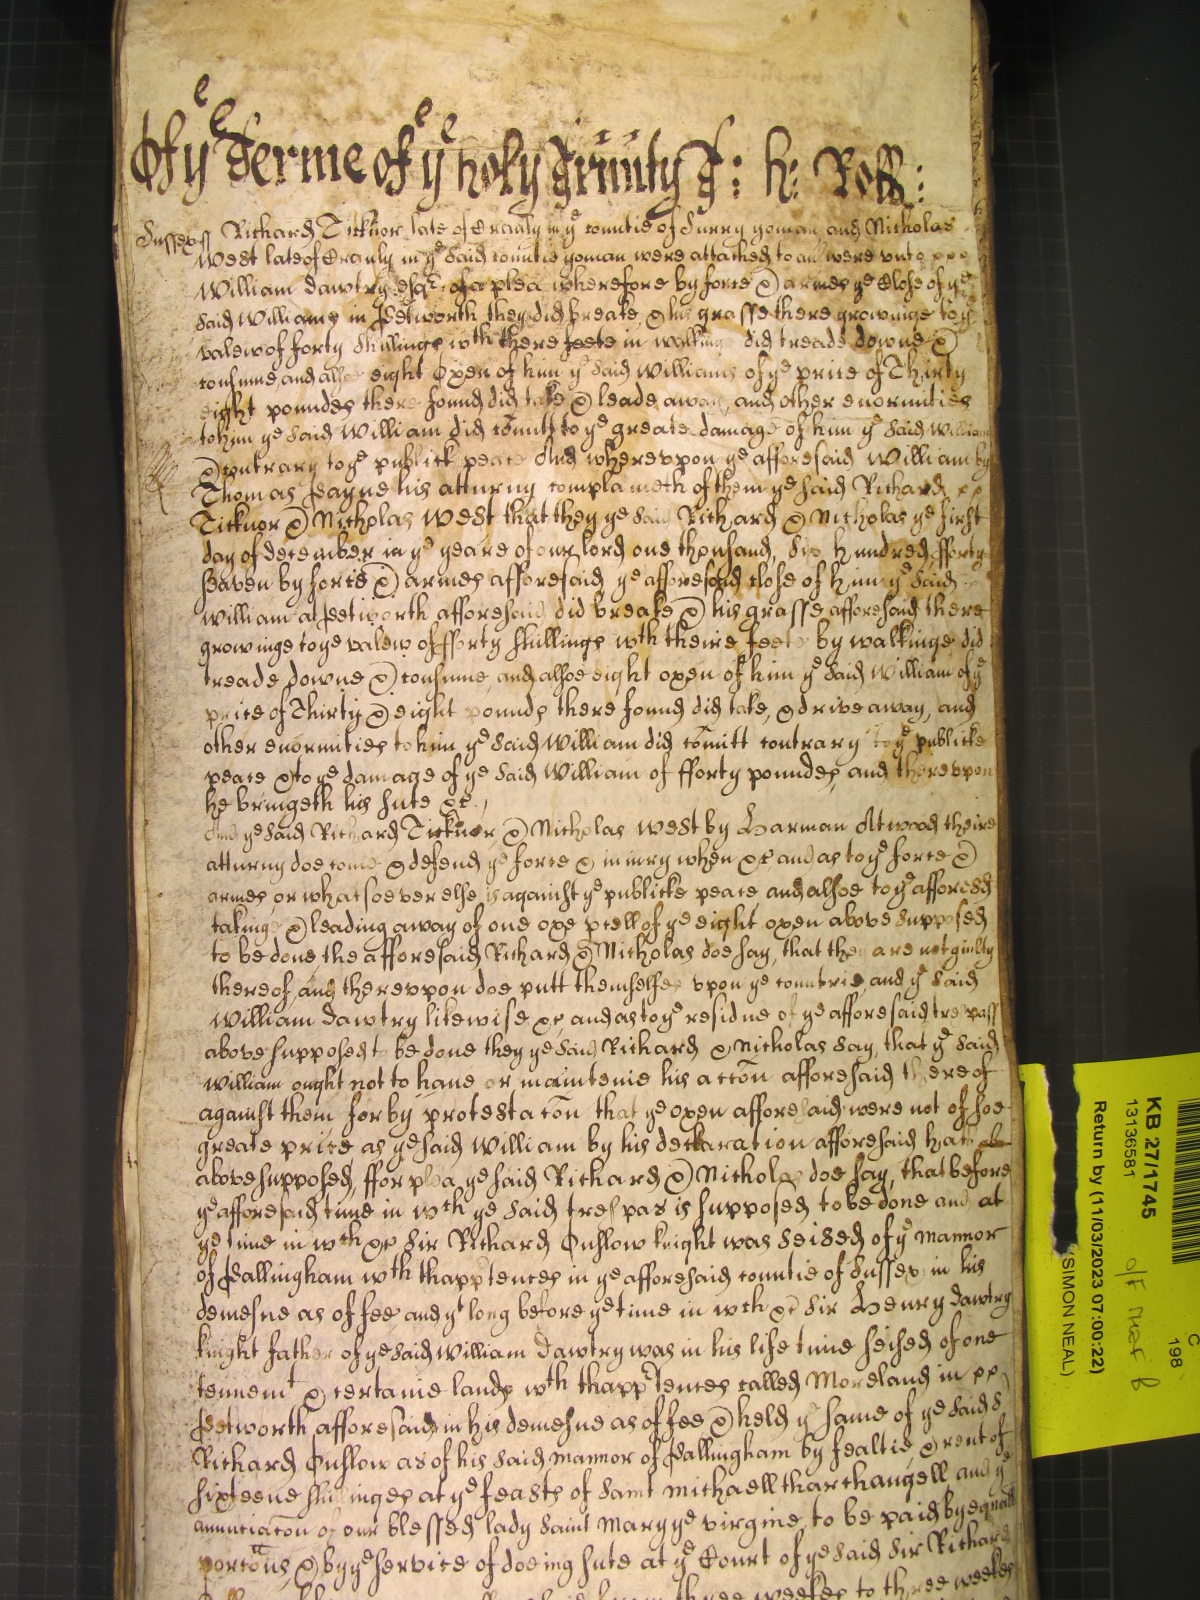 Of ye Terme of ye holy Trinity : h: Roll:
Sussex ss Richard Ticknor late of Cranly in ye countie of Surry yoman and Nicholas
West late of Cranly in ye said countie yoman were attached to answere unto
William Dawtry esqr. of a plea wherefore by force & armes ye Close of ye
said Williams in Petworth they did breake & his grasse there growinge to ye
valew of forty shillings wth there feete in walkinge did treade downe &
consume and alsoe eight Oxen of him ye said Williams of ye price of Thirty
eight poundes there found did take & leade away, and other enormities
to him ye said William did comitt to ye greate damage of him ye said William
& contrary to ye publick peace And whereupon ye afforesaid William by
Thomas Payne his atturny complaineth of them ye said Richard
Ticknor & Nicholas West that they ye said Richard & Nicholas ye first
day of december in ye yeare of our lord one thousand, six hundred, fforty
seaven by force & armes afforesaid ye afforesaid close of him ye said
William at Petworth afforesaid did breake & his grasse afforesaid there
growinge to ye valew of fforty shillings wth theire feete by walkinge did
treade downe & consume, and alsoe eight oxen of him ye said William of ye
price of Thirty & eight pounds there found did take, & drive away, and
other enormities to him ye said William did comitt contrary to ye publicke
peace & to ye damage of ye said William of fforty poundes, and thereupon
he bringeth his sute &c.,
And ye said Richard Ticknor, & Nicholas West by Harman Atwood theire
atturny doe come & defend ye force & iniury when &c and as to ye force &
armes, or whatsoever else is against ye publicke peace, and alsoe to ye afforesd
takinge & leading away of one oxe pcell of ye eight oxen above supposed
to be done the afforesaid Richard & Nicholas doe say, that they are not guilty
thereof, and thereupon doe putt themselfes upon ye countrie, and ye said
William Dawtry likewise &c, and as to ye residue of ye afforesaid trespass
above supposed to be done they ye said Richard & Nicholas say, that ye said
William ought not to have or maintenie his accon afforesaid thereof
against them for by protestacon that ye oxen afforesaid were not of soe
greate price as ye said William by his declaration afforesaid hath
above supposed, ffor plea ye said Richard & Nicholas doe say, that before
ye afforesaid time in wch ye said trespas is supposed to be done and at
ye time in wch &c Sir Richard Onslow knight was seised of ye mannor
of Pallingham wth thapptences in ye afforesaid countie of Sussex in his
demesne as of fee and yt long before ye time in wch &c Sir Henry Dawtry
knight father of ye said William Dawtry was in his life time seised of one
tennemt & certaine lands wth thapptences called Moreland in
Petworth afforesaid in his demesne as of fee & held ye same of ye said S
Richard Onslow as of his said mannor of Pallingham by fealtie, & rent of
sixteene shillinges at ye feasts of saint Michaell tharchangell and ye
annuntiacon of our blessed lady saint Mary ye virgine, to be paid by equall
portons, & by ye service of doeing sute at ye Court of ye said Sir Richard
from three weekes to three weekes
KB 27/1745
13136581
Return by (11/03/2023 07:00:22)
(SIMON NEAL)
C
198